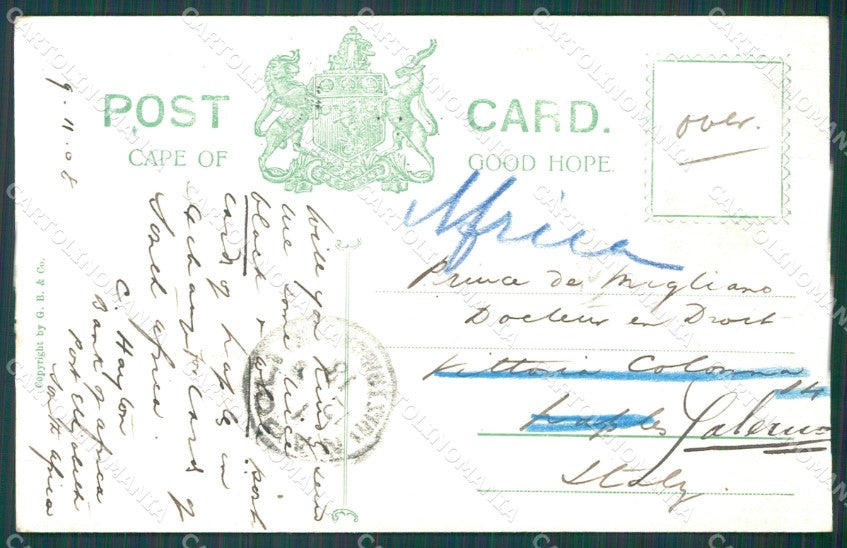 POST CARD.
CAPE OF GOOD HOPE.
over.
Africa
Prince de Migliano
Docteur en Droit
Vittoria Colonna 14
Naples Salerno
Italy
9.11.08
Will you kindly send
me some nice
black & post
cards of Naples in
exchange card of
South Africa.
C. Hayton
Bank of Africa
Port Elizabeth
South Africa
Copyright by G. B. & Co.
CARTOLINOMANIA